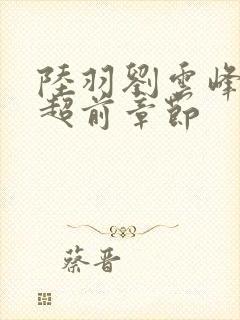 陸羽劉雲峰
超前章節
蔡晋